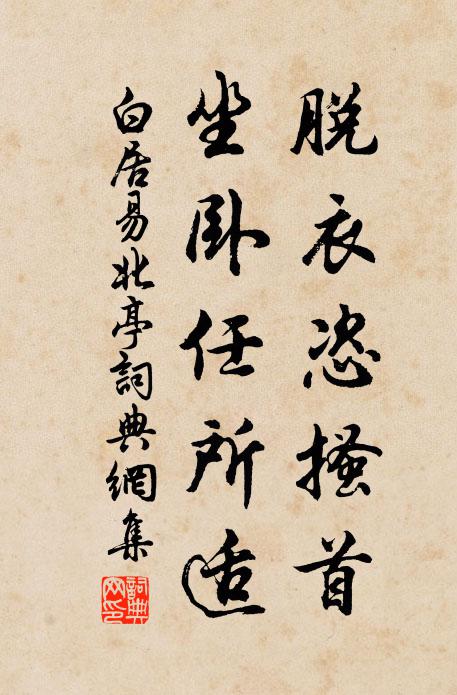 脫衣恣搔首
坐卧任所适
白居易北亭詞典網集
詞典网印